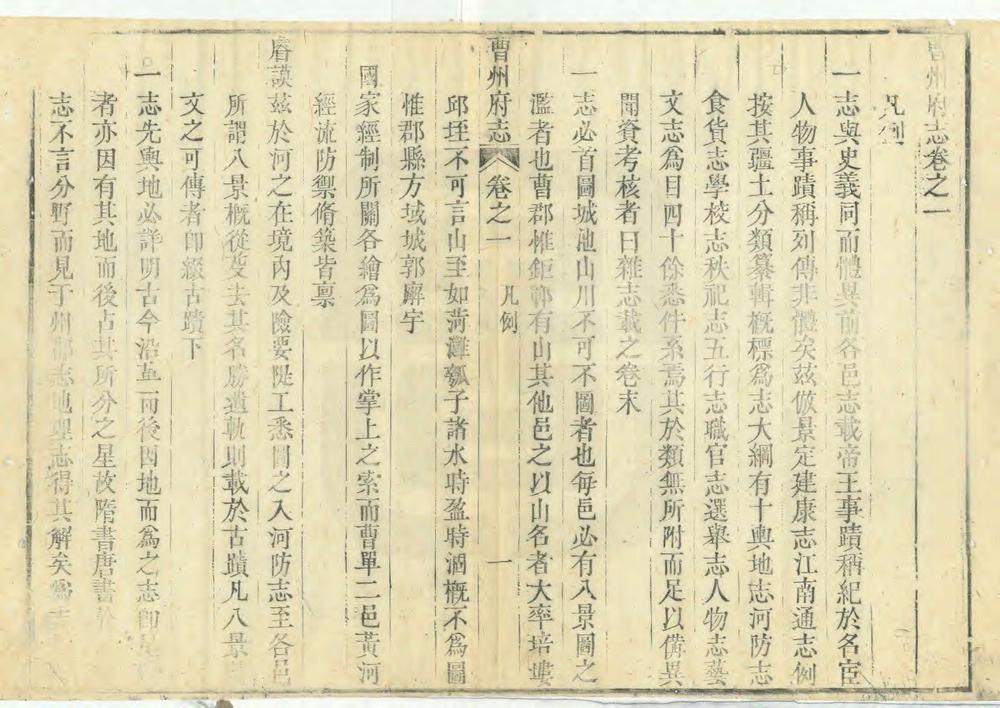 曹州府志卷之一
凡例
一志與史義同而體異前各邑志載帝王事蹟稱紀於名宦
人物事蹟稱列傳非體矣茲倣景定建康志江南通志例
按其疆土分類纂輯概標為志大綱有十輿地志河防志
食貨志學校志秩祀志五行志職官志選舉志人物志藝
文志為目四十餘悉件系焉其於類無所附而足以備異
聞資考核者曰雜志載之卷末
一志必首圖城池山川不可不圖者也每邑必有八景圖之
濫者也曹郡惟鉅鄆有山其他邑之以山名者大率培塿
曹州府志 卷之一 凡例 一
邱垤不可言山至如菏灉瓠子諸水時盈時涸概不為圖
惟郡縣方域城郭廨宇
國家經制所關各繪為圖以作掌上之索而曹單二邑黃河
經流防禦脩築皆稟
睿謨茲於河之在境內及險要隄工悉圖之入河防志至各邑
所謂八景概從芟去其名勝遺軌則載於古蹟凡八景
文之可傳者卽綴古蹟下
一志先輿地必詳明古今沿革而後因地而為之志卽星
者亦因有其地而後占其所分之星故隋書唐書
志不言分野而見于州郡志地理志得其解矣為志